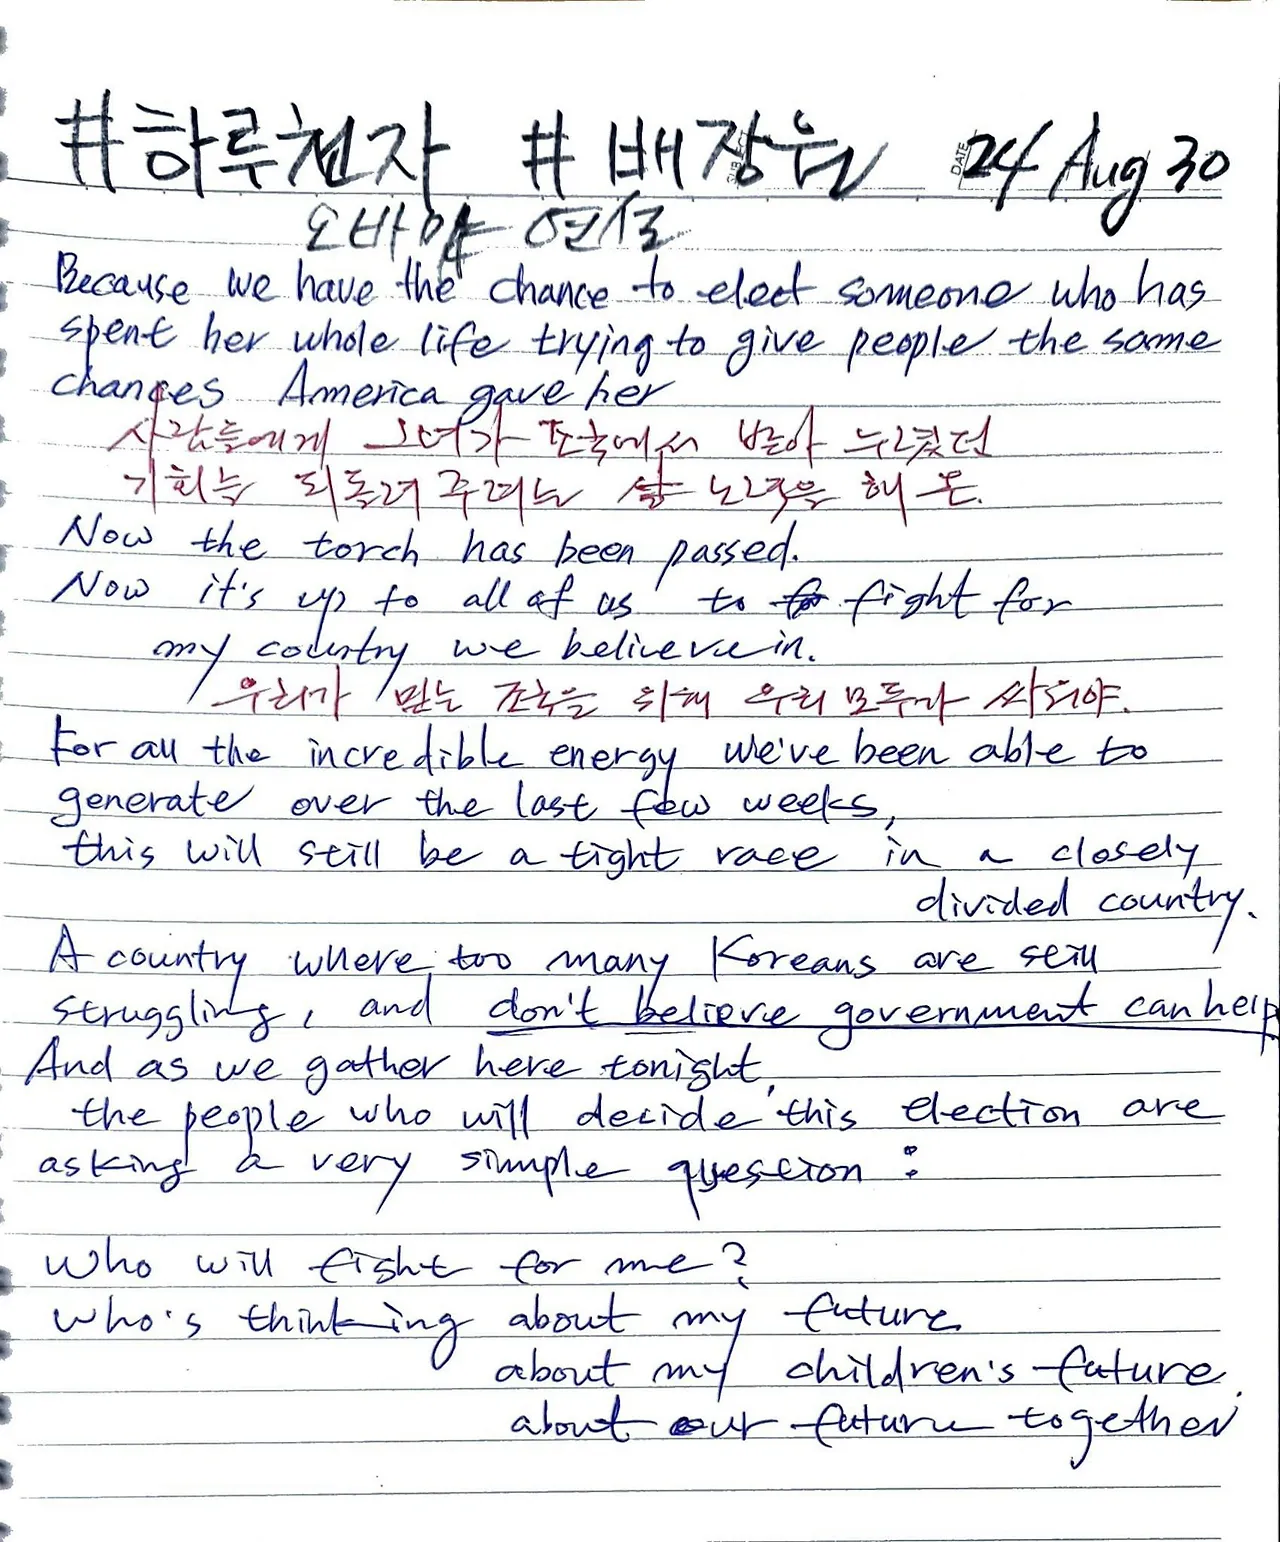 #하루천자 # 배장원 DATE 24 Aug 30
오바마 연설
Because we have the chance to elect someone who has
spent her whole life trying to give people the same
chances America gave her
사람들에게 그녀가 조국에서 받아 누렸던
기회를 되돌려주려는 삶 노력을 해 온.
Now the torch has been passed.
Now it's up to all of us to fight for
my country we believe in.
우리가 믿는 조국을 위해 우리 모두가 싸워야.
For all the incredible energy we've been able to
generate over the last few weeks,
this will still be a tight race in a closely
divided country.
A country where too many Koreans are still
struggling, and don't believe government can help
And as we gather here tonight,
the people who will decide this election are
asking a very simple question :
Who will fight for me?
Who's thinking about my future
about my children's future.
about our future together